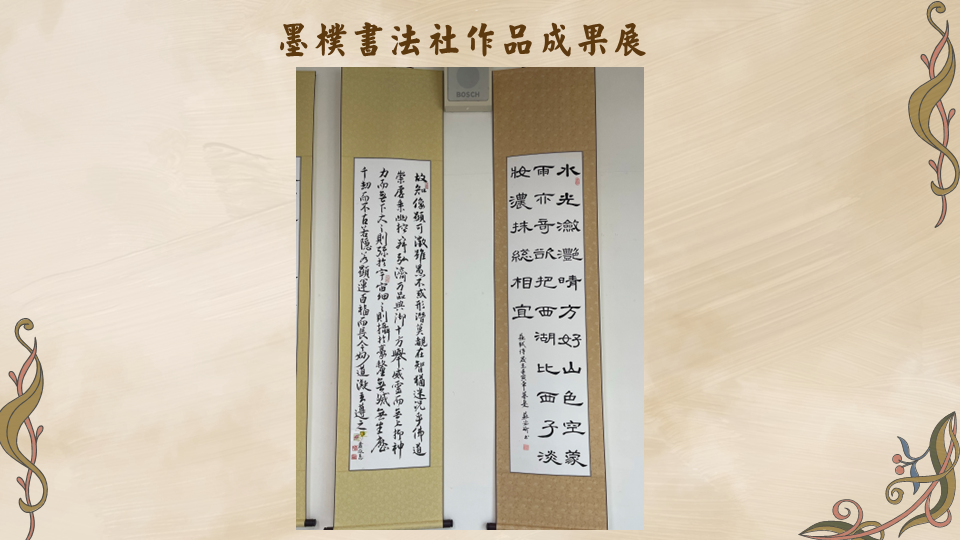 墨樸書法社作品成果展
BOSCH
水光瀲灧晴方好山色空蒙
雨亦奇欲把西湖比西子淡
妝濃抹総相宜
故知像顯可徵雖愚不惑形潛莫覩在智猶迷況乎佛道
崇虛乘幽控寂弘濟万品典御十方舉威靈而無上抑神
力而無下大之則彌於宇宙細之則攝於毫釐無滅無生歷
千劫而不古若隱若顯運百福而長今妙道凝玄遵之